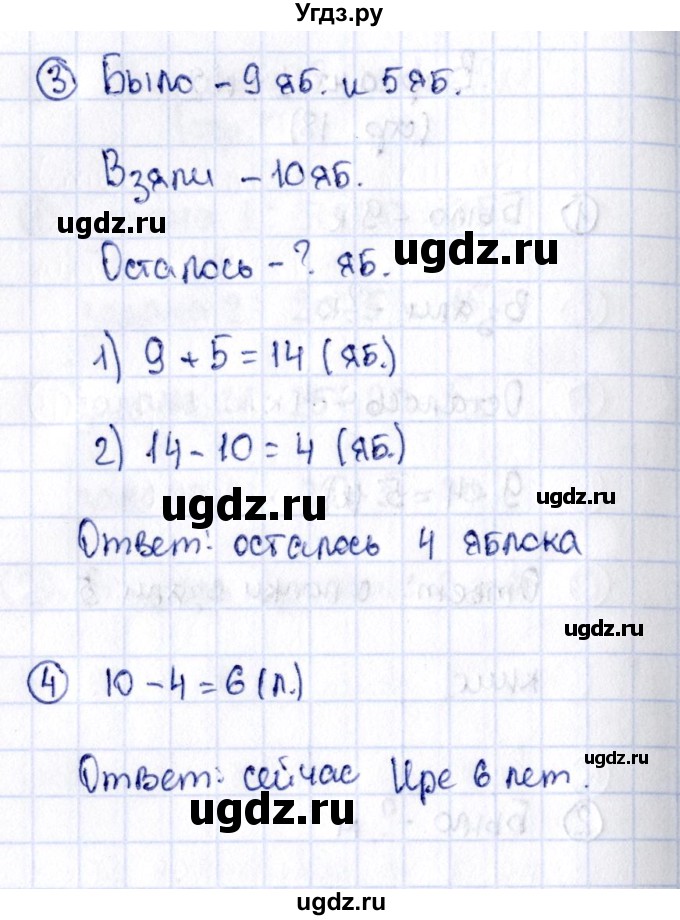 Угдз.ру
③ Было – 9 яб. и 5 яб.
Взяли – 10 яб.
ugdz.ru
ugdz.ru
Осталось – ? яб.
ugdz.ru
1) 9 + 5 = 14 (яб.)
2) 14 – 10 = 4 (яб.)
ugdz.ru
Ответ: осталось 4 яблока
ugdz.ru
④ 10 – 4 = 6 (л.)
ugdz.ru
Ответ: сейчас Ире 6 лет.
ugdz.ru
ugdz.ru